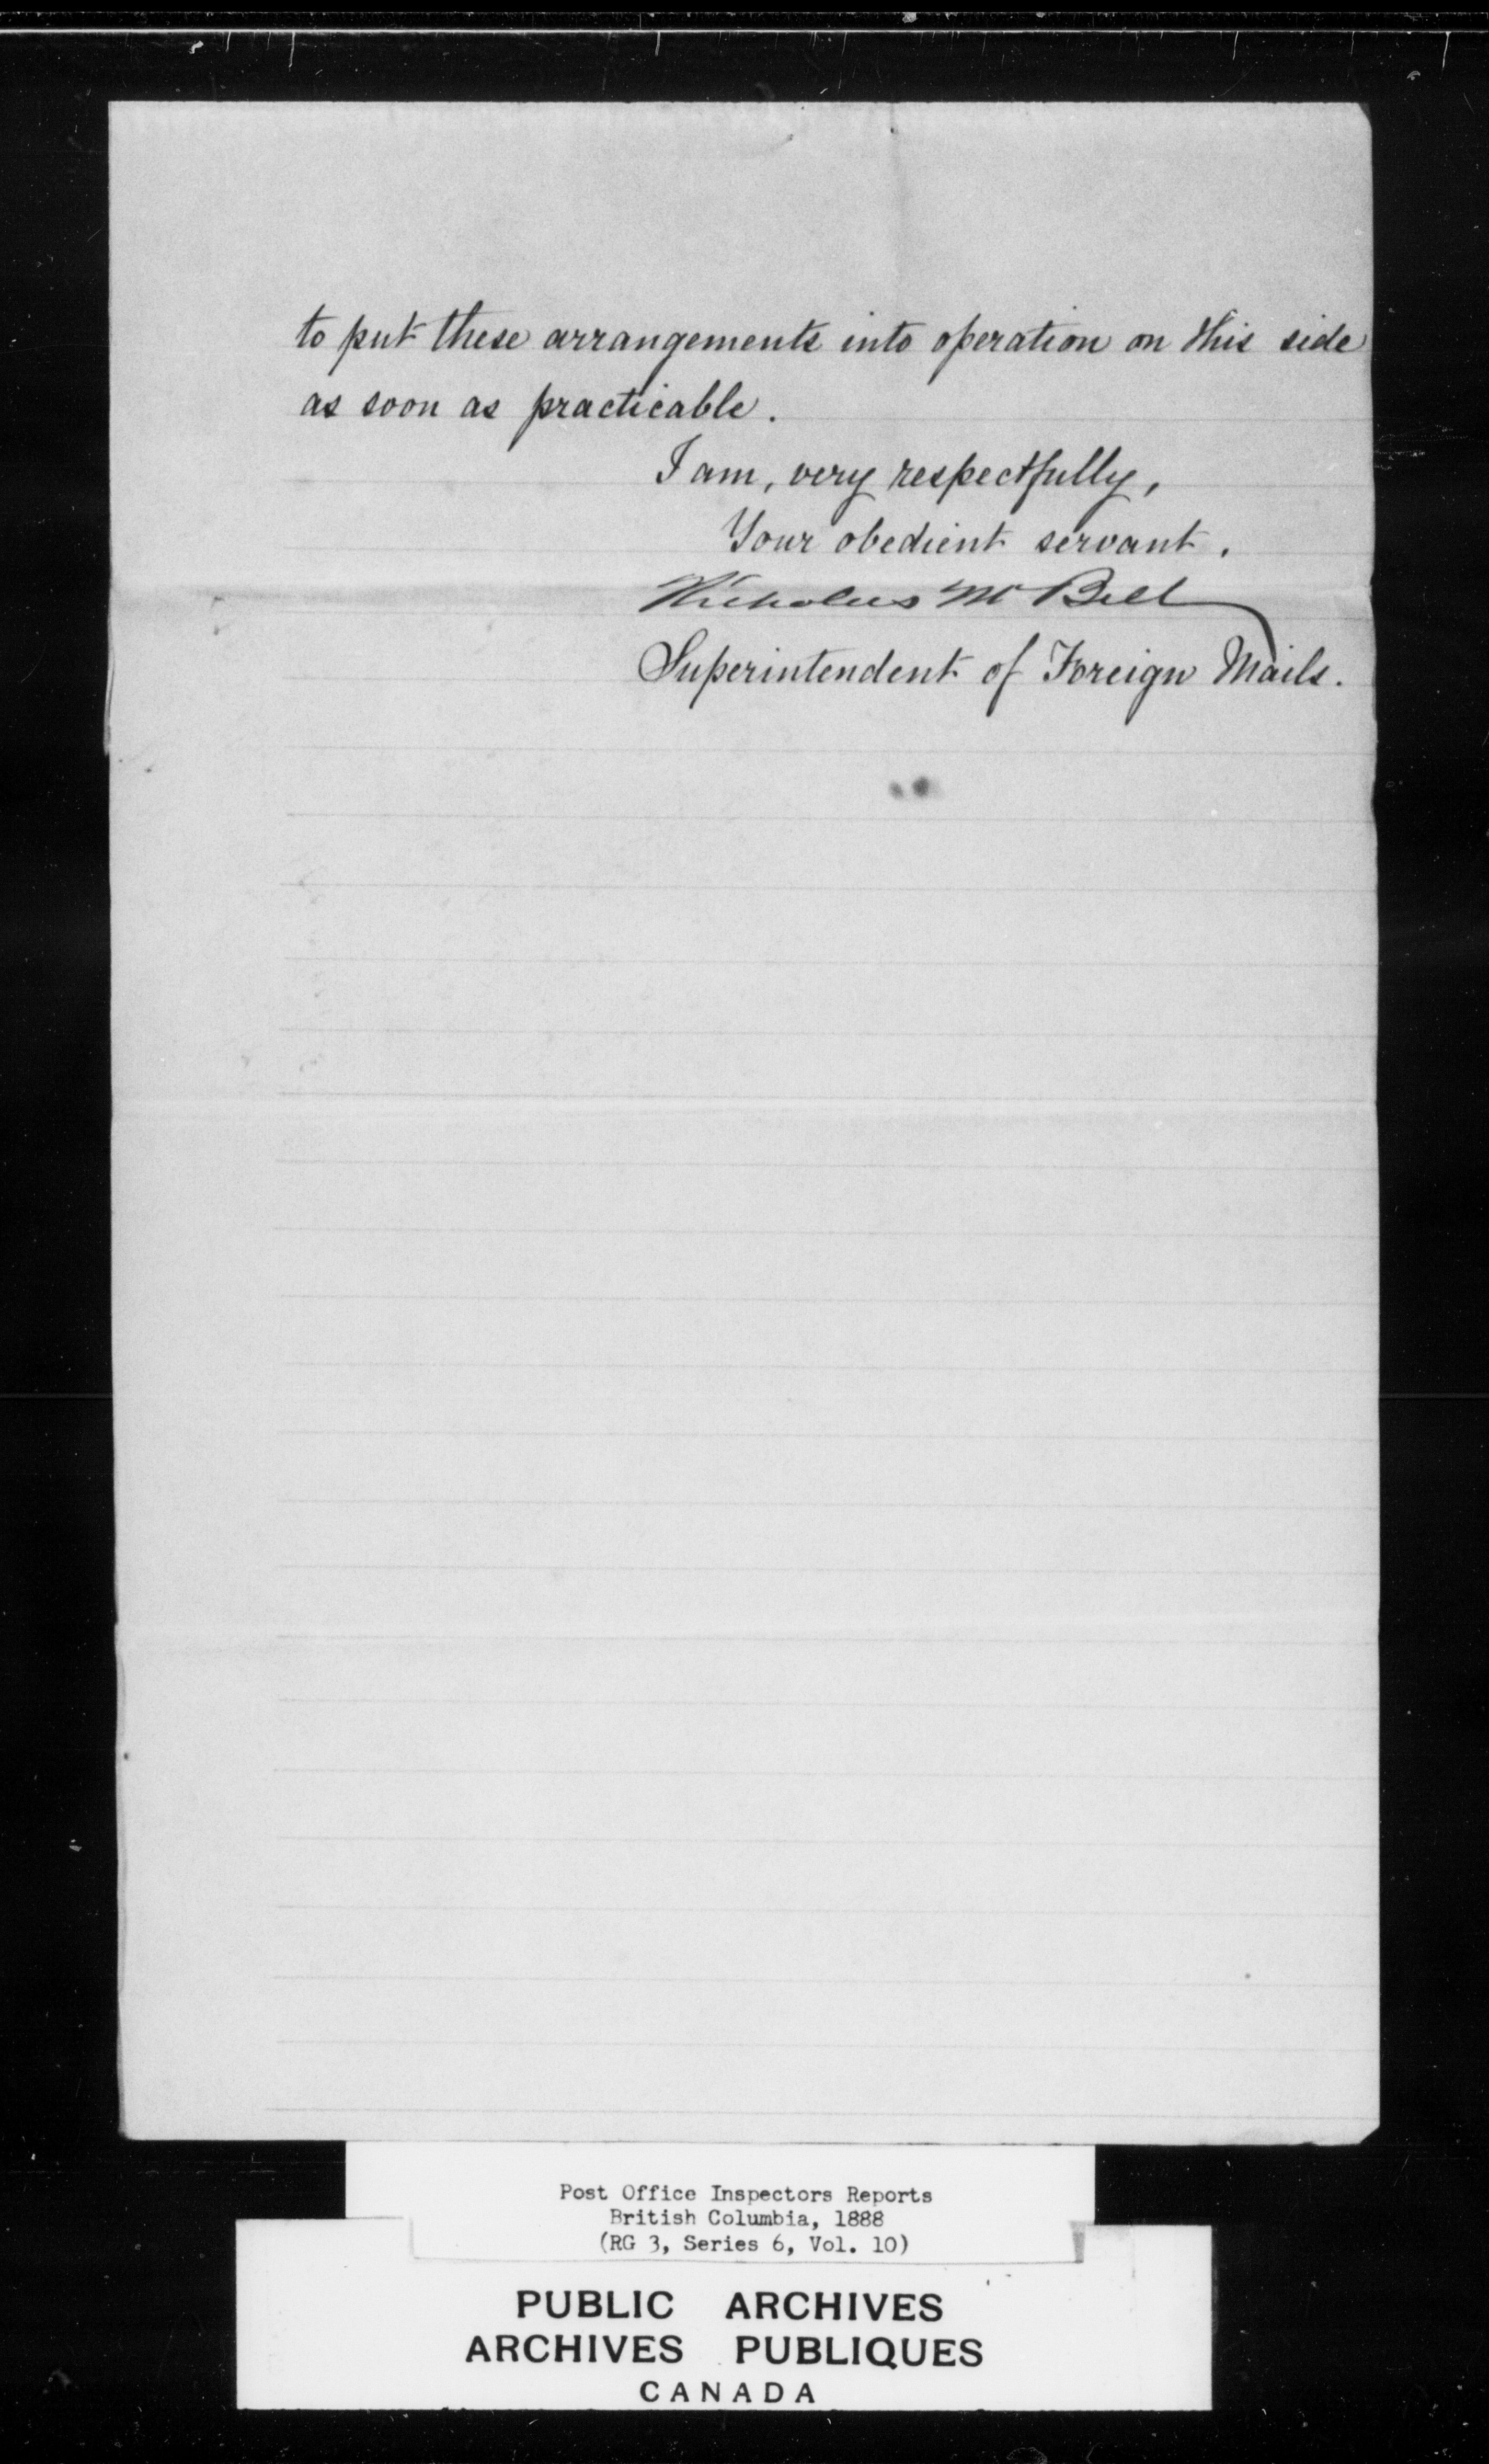 to put these arrangements into operation on this side
as soon as practicable.
I am, very respectfully,
Your obedient servant.
Nicholas M Bell
Superintendent of Foreign Mails.
Post Office Inspectors Reports
British Columbia, 1888
(RG 3, Series 6, Vol. 10)
PUBLIC ARCHIVES
ARCHIVES PUBLIQUES
CANADA